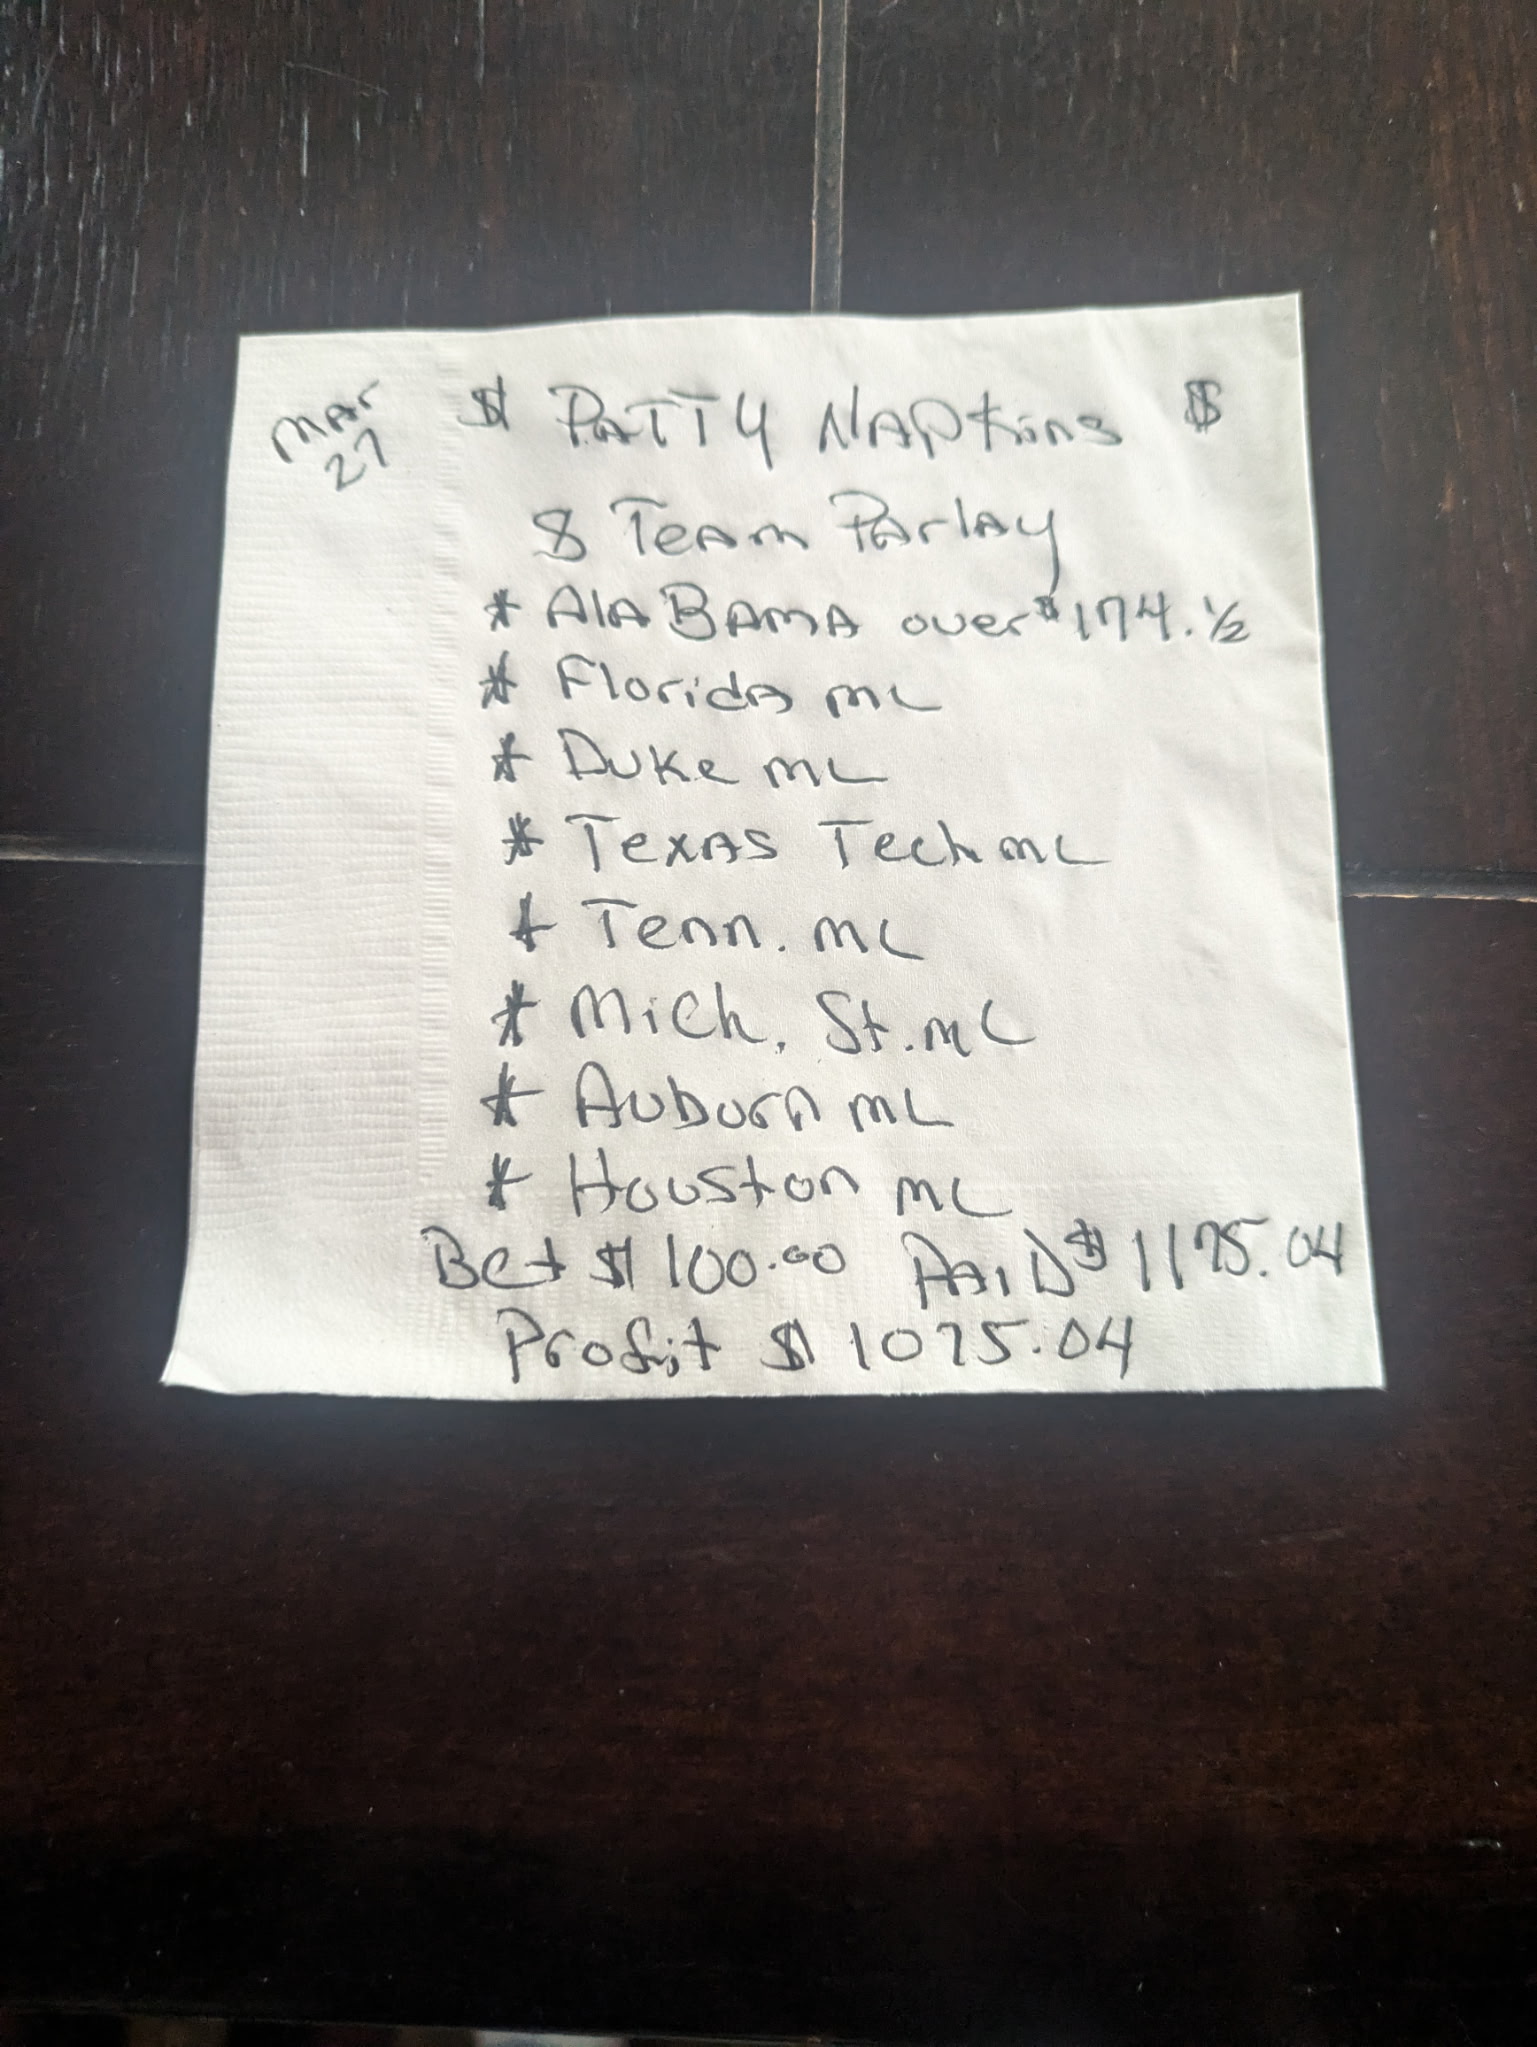 Mar
27
$ PATTY NAPkins $
8 Team Parlay
* AlABAMA over $174.½
* Florida ML
* Duke ML
* Texas Tech ML
* Tenn. ML
* Mich. St. ML
* Auburn ML
* Houston ML
Bet $100.00 PAID $1175.04
Profit $1075.04